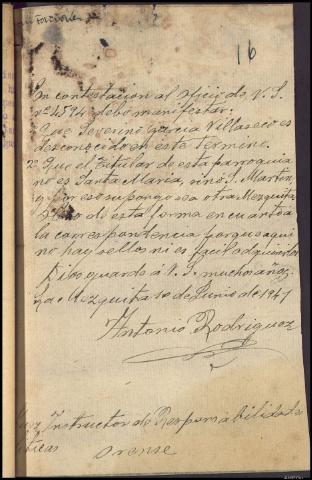 16
En contestación al oficio de V. S.
nº 4594 debo manifestar.
Que Severino Garcia Villaseco es
desconocido en este Termino.
2º Que el Titular de esta parroquia
no es Santa Maria, sino S. Martin
y por eso supongo sea otra Mezquita
de esta forma en cuanto a
la correspondencia porque aqui
no hay sellos ni es facil adquirirlos
Dios guarde a V. S. muchos años
Mezquita 10 de Junio de 1941
Antonio Rodriguez
Juez Instructor de Responsabilidades
Orense